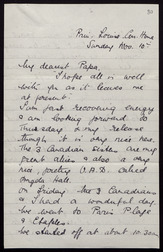 30
Pris. Louise Con. Home
Sunday Nov. 10th
My dearest Papa,
I hope all is well
with you as it leaves me
at present.
I am fast recovering energy
& am looking forward to
Thursday & my release
though it is very nice here.
The 3 Canadian sisters are my
great allies & also a very
nice, pretty V.A.D. called
Angela Hale.
On Friday the 3 Canadians
& I had a wonderful day
we went to Paris Plage
& Etaples.
We started off at about 10.30am